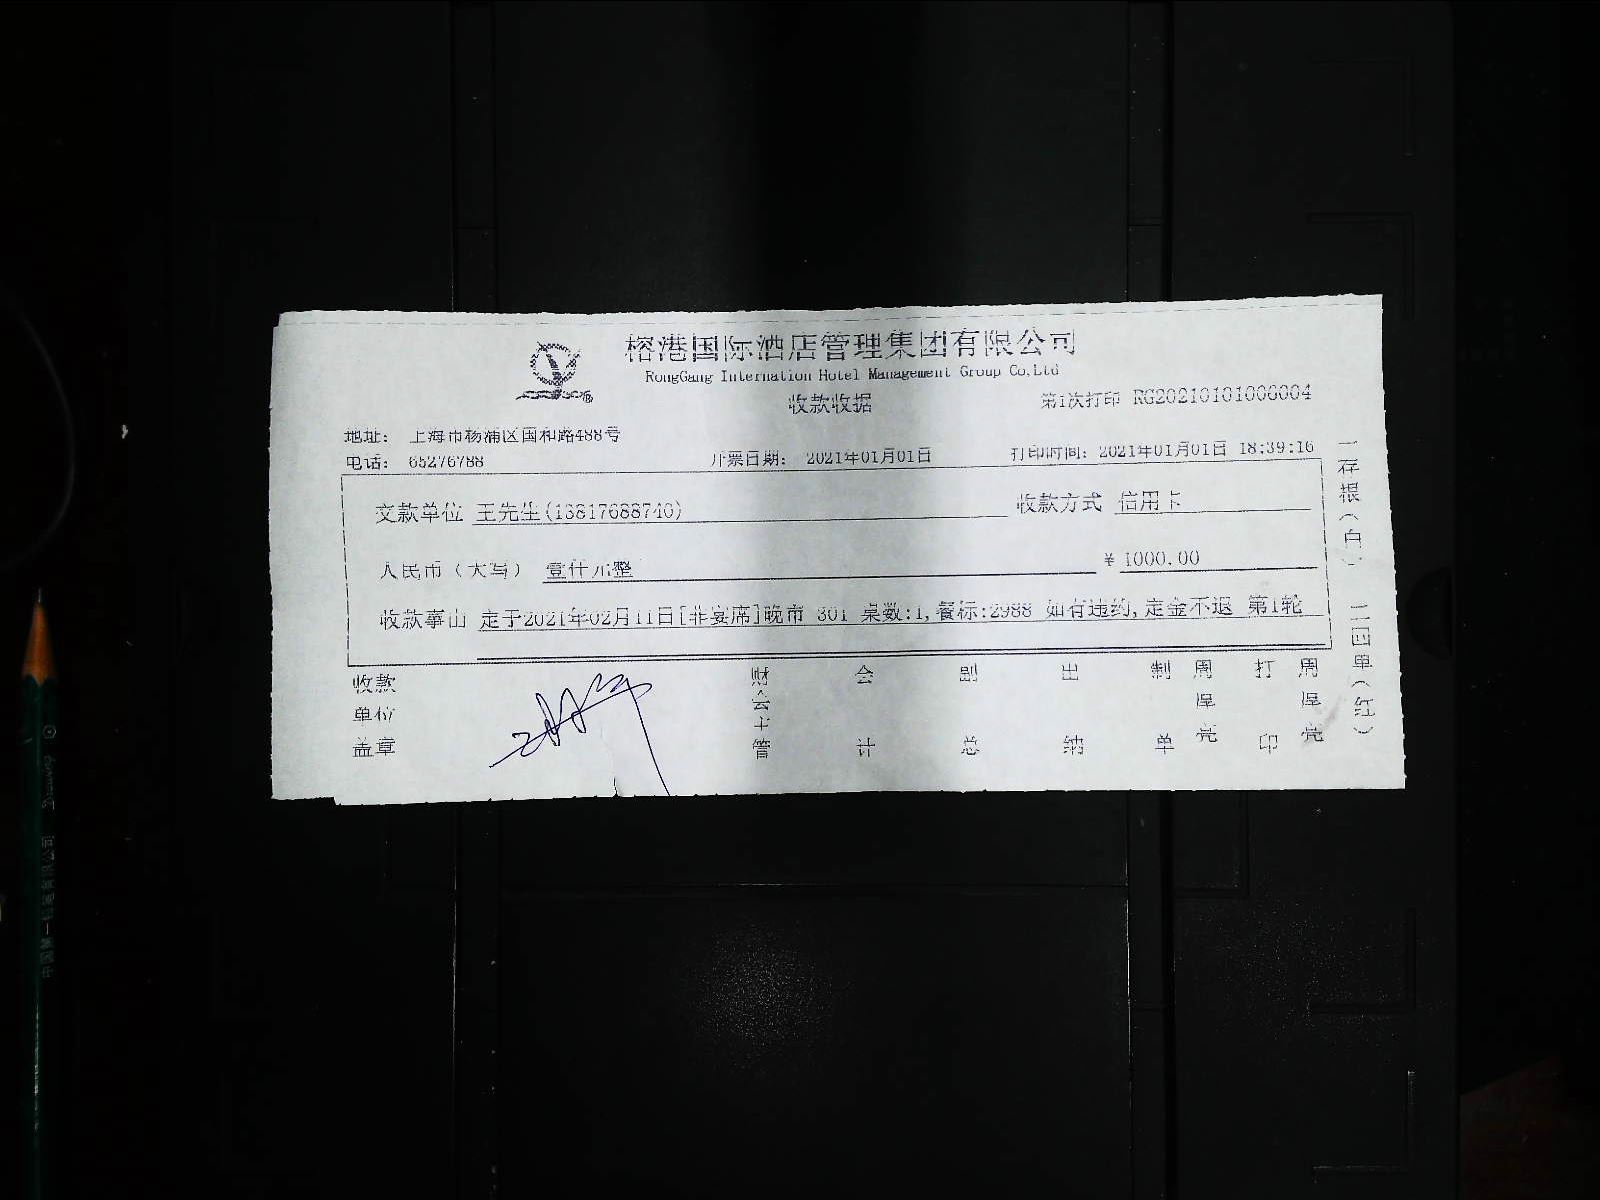 榕港国际酒店管理集团有限公司
RongGang Internation Hotel Management Group Co,Ltd
收款收据
第1次打印 RG20210101000004
地址: 上海市杨浦区国和路488号
电话: 65276788
开票日期: 2021年01月01日
打印时间: 2021年01月01日 18:39:16
交款单位 王先生(13817688740)
收款方式 信用卡
人民币(大写) 壹仟元整
¥ 1000.00
收款事由 定于2021年02月11日[非宴席]晚市 301 桌数:1,餐标:2988 如有违约,定金不退 第1轮
收款单位盖章
财会主管
会计
副总
出纳
制单
周厚亮
打印
周厚亮
一存根(白) 二四单(红)
中国第一铅笔有限公司